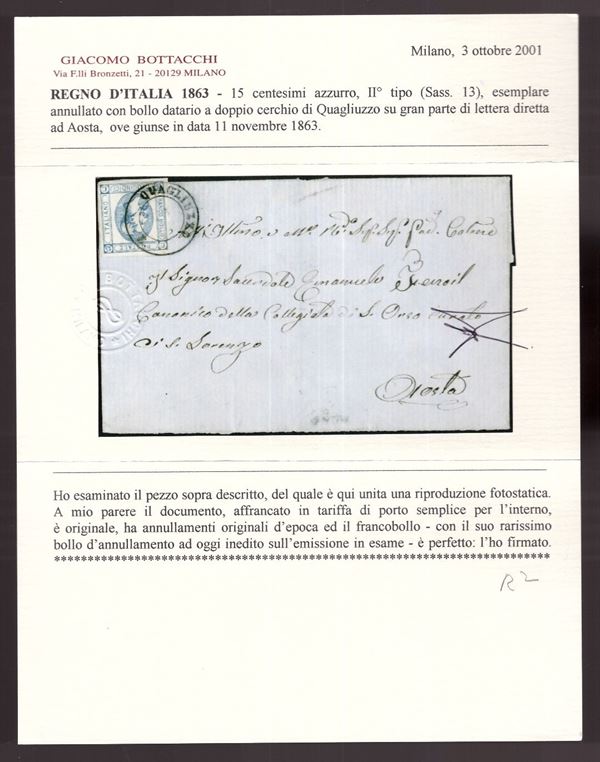 GIACOMO BOTTACCHI
Via F.lli Bronzetti, 21 - 20129 MILANO
Milano, 3 ottobre 2001
REGNO D'ITALIA 1863 - 15 centesimi azzurro, II° tipo (Sass. 13), esemplare
annullato con bollo datario a doppio cerchio di Quagliuzzo su gran parte di lettera diretta
ad Aosta, ove giunse in data 11 novembre 1863.
QUAGLIUZZO
Il Signor Sacerdote Emanuele
Canonico della Collegiata di S. Orso
di S. Lorenzo
Aosta
Ho esaminato il pezzo sopra descritto, del quale è qui unita una riproduzione fotostatica.
A mio parere il documento, affrancato in tariffa di porto semplice per l'interno,
è originale, ha annullamenti originali d'epoca ed il francobollo - con il suo rarissimo
bollo d'annullamento ad oggi inedito sull'emissione in esame - è perfetto: l'ho firmato.
R2